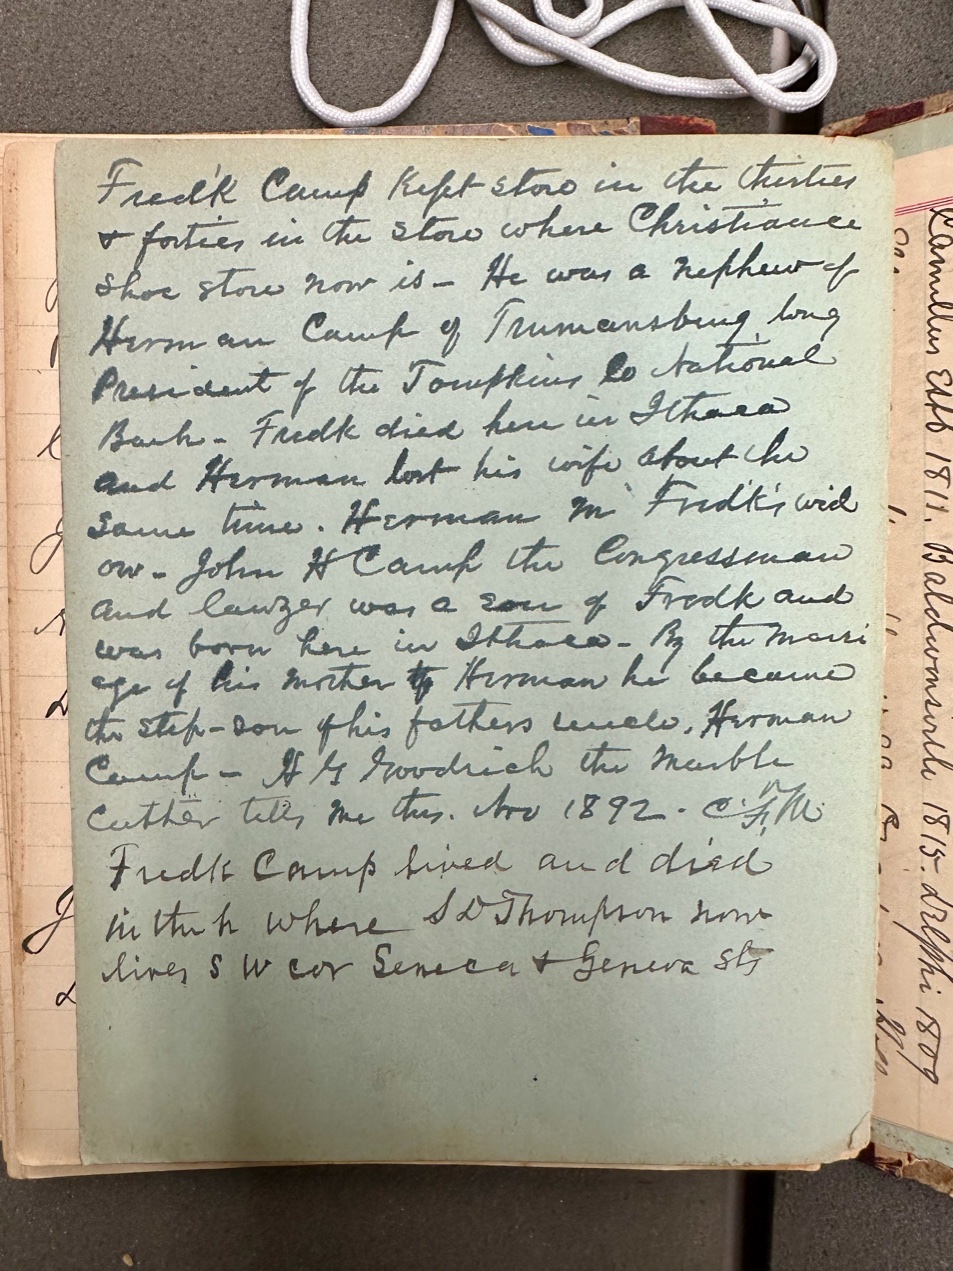 Fredk Camp Kept store in the thirties
& forties in the store where Christiance
Shoe store now is - He was a nephew of
Herman Camp of Trumansburg, long
President of the Tompkins Co National
Bank - Fredk died here in Ithaca
and Herman lost his wife about the
same time. Herman m Fredk's wid
ow - John H Camp the Congressman
and lawyer was a son of Fredk and
was born here in Ithaca - By the marri
age of his mother to Herman he became
the step-son of his fathers uncle, Herman
Camp - H G Goodrich the Marble
Cutter tells me this. Nov 1892 - C.F.M
Fredk Camp lived and died
in the h where S D Thompson now
lives S W cor Seneca & Geneva sts
Camillus Estb 1811. Baldwinsville 1815. Delphi 1809